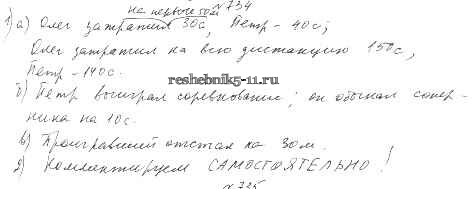 №734
на первые 50 м
1) а) Олег затратил 30с, Петр - 40с;
Олег затратил на всю дистанцию 150с,
Петр - 140с.
reshebnik5-11.ru
б) Петр выиграл соревнование; он обогнал сопер-
ника на 10с.
в) Проигравший отстал на 30м.
2) Комментируем САМОСТОЯТЕЛЬНО!